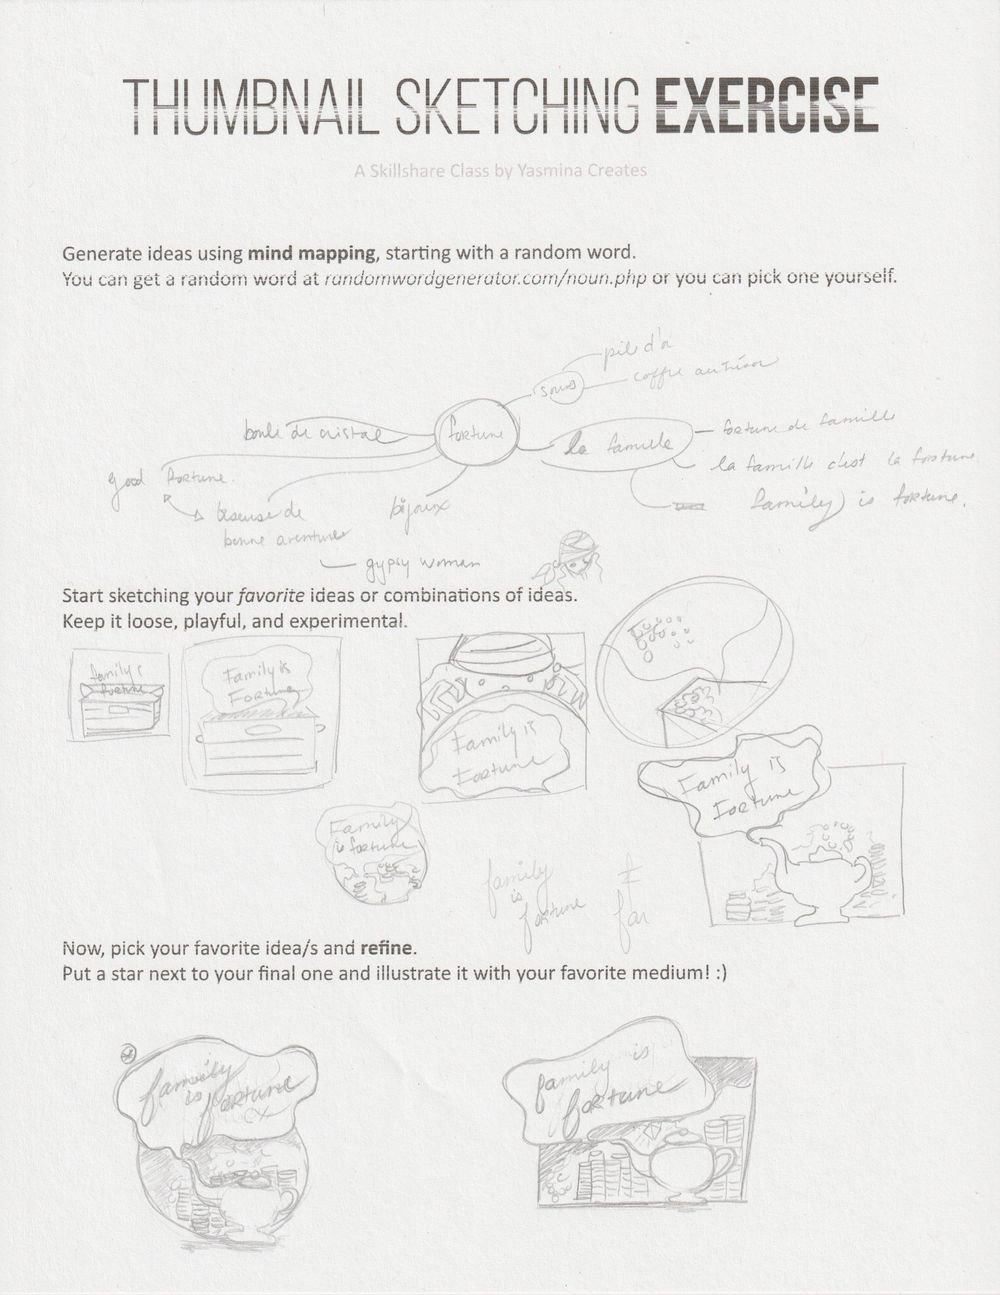 THUMBNAIL SKETCHING EXERCISE
A Skillshare Class by Yasmina Creates
Generate ideas using mind mapping, starting with a random word.
You can get a random word at randomwordgenerator.com/noun.php or you can pick one yourself.
pile d'or
sous
coffre au trésor
fortune
boule de cristal
la famille
fortune de famille
la famille c'est la fortune
family is fortune.
good fortune.
bijoux
diseuse de
bonne aventure
gypsy woman
Start sketching your favorite ideas or combinations of ideas.
Keep it loose, playful, and experimental.
family is
fortune
Family is
Fortune
Family is
Fortune
Family is
Fortune
Family
is fortune
family
is
fortune
f
far
Now, pick your favorite idea/s and refine.
Put a star next to your final one and illustrate it with your favorite medium! :)
family
is fortune
family is
fortune